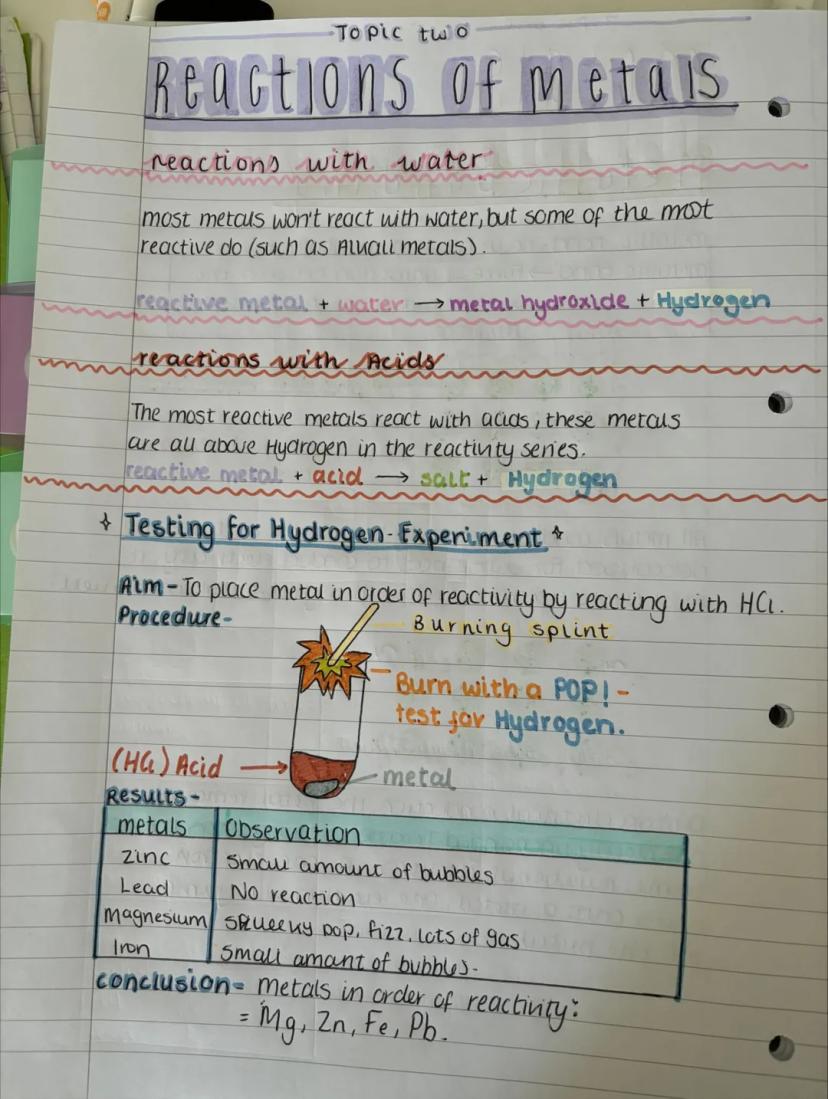 Topic two
Reactions of metals
reactions with water
most metals won't react with water, but some of the most
reactive do (such as Alkali metals).
reactive metal + water → metal hydroxide + Hydrogen
reactions with Acids
The most reactive metals react with acids, these metals
are all above Hydrogen in the reactivity series.
reactive metal + acid → salt + Hydrogen
Testing for Hydrogen - Experiment
Aim - To place metal in order of reactivity by reacting with HCl.
Procedure-
Burning splint
Burn with a POP! -
test for Hydrogen.
(HCl) Acid →
metal
Results -
metals Observation
Zinc small amount of bubbles
Lead No reaction
Magnesium squeeky pop, fizz, lots of gas
Iron small amant of bubbles.
conclusion= metals in order of reactivity:
= Mg, Zn, Fe, Pb.